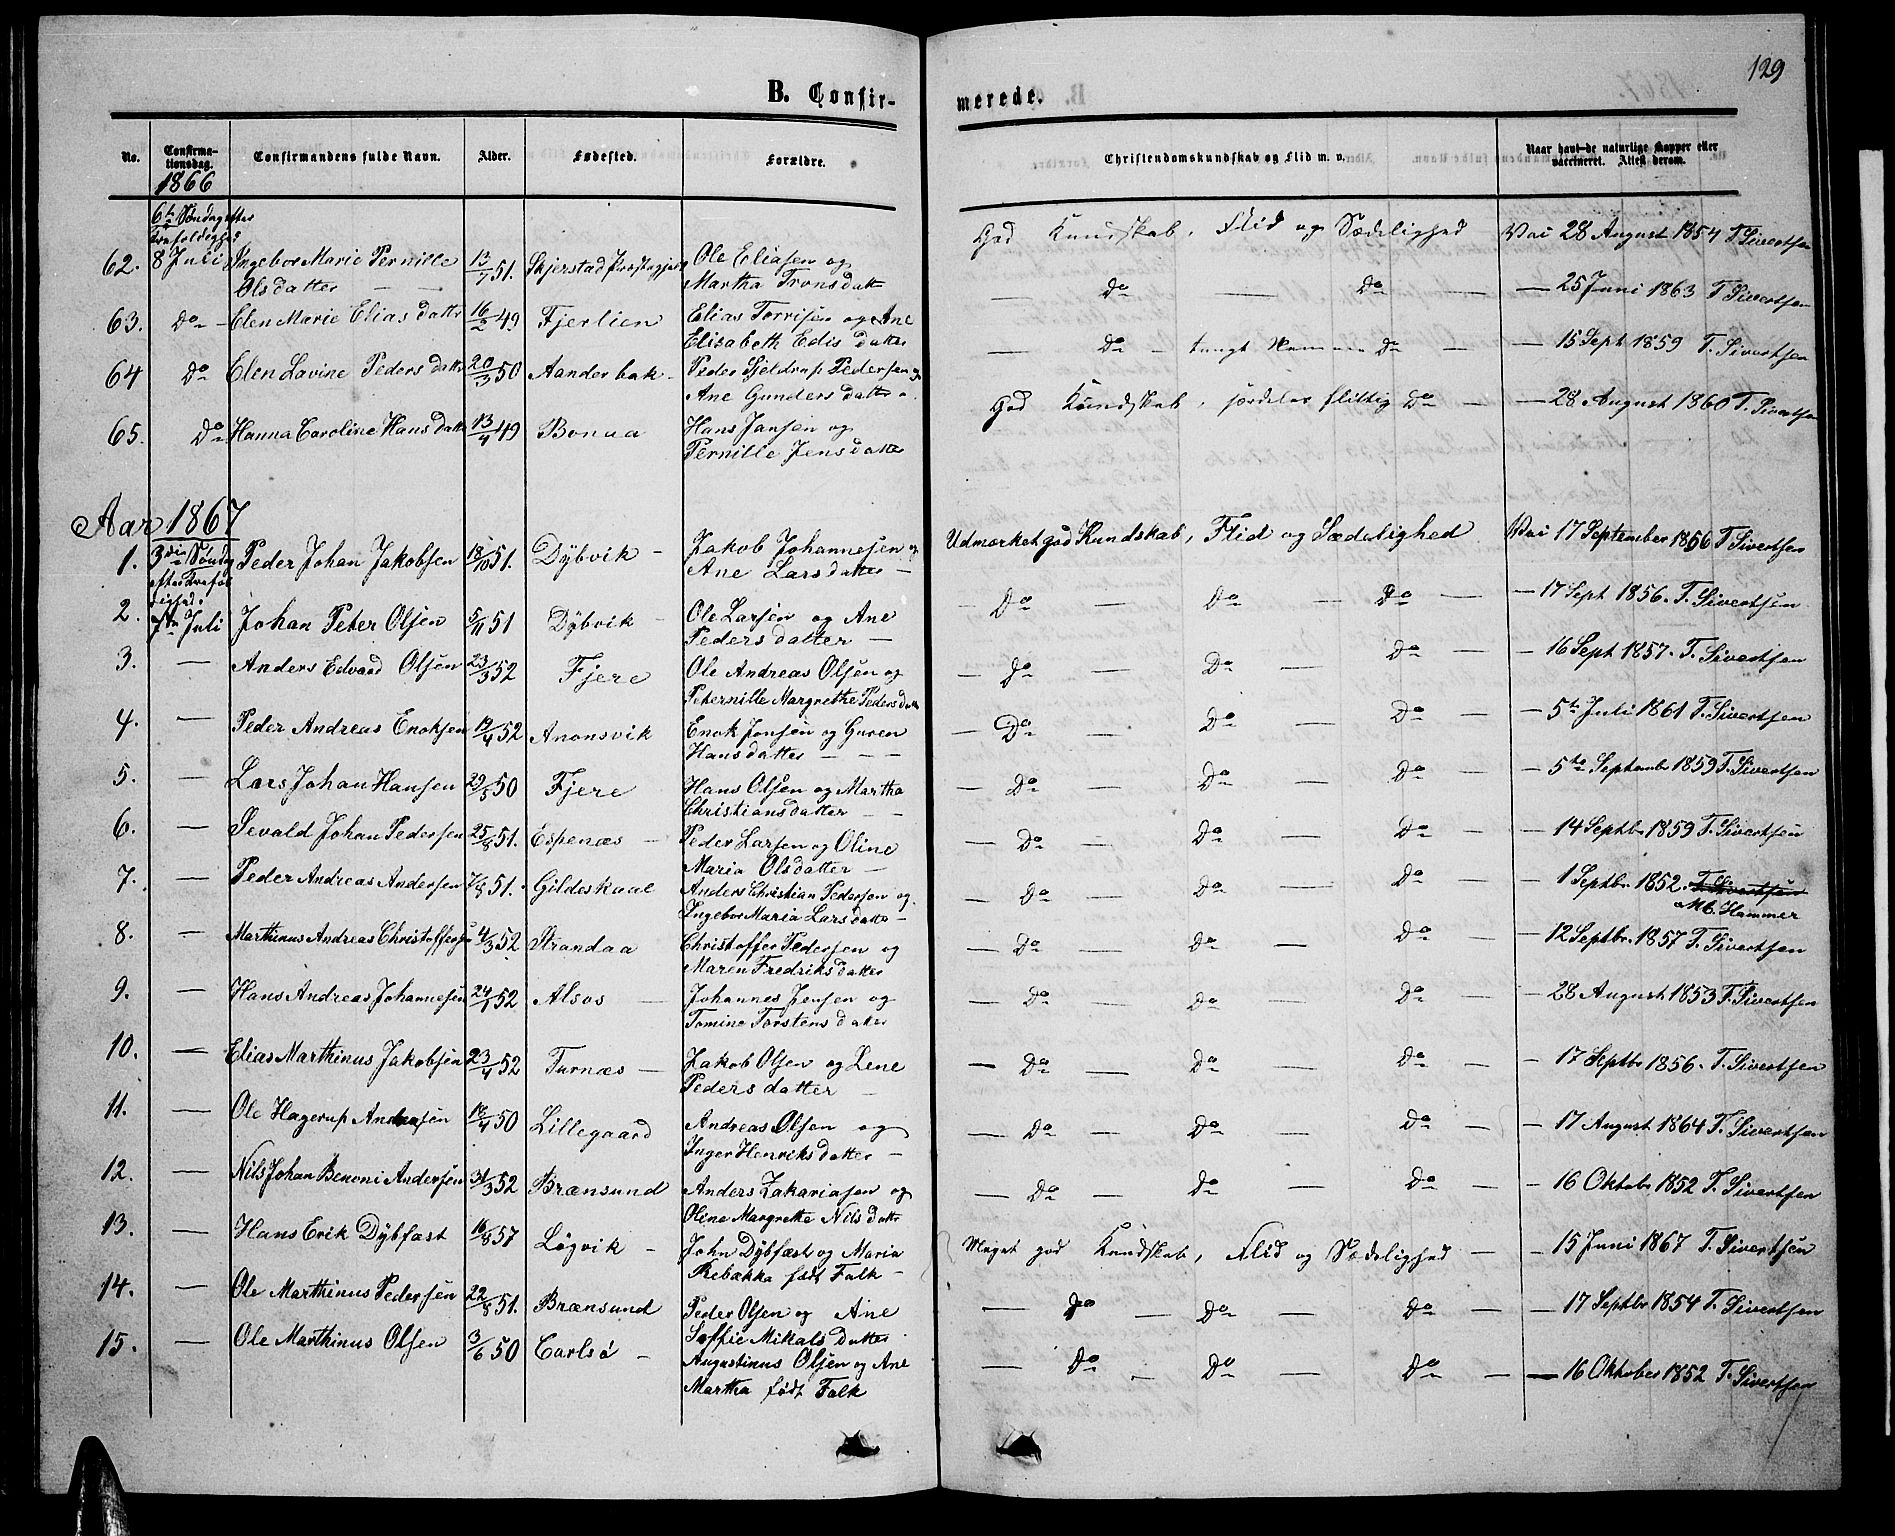 129
B. Confir-
merede.
No.
Confirma-
tionsdag.
Confirmandens fulde Navn.
Alder.
Fødested.
Forældre.
Christendomskundskab og Flid m. v.
Naar havt de naturlige Kopper eller
vaccineret. Attest derom.
1866
6te Søndag efter
Trefoldighed
62. 8 Juli Ingebor Marie Pernille 13/7 51. Skjerstad Ole Eliasen og God Kundskab, Flid og Sædelighed Vac 28 August 1854 T Sivertsen
Olsdatter — — Martha Tronsdatter
63. Do - Elen Marie Eliasdatter 16/2 49 Fjerlien Elias Torrisen og Ane — Do — Do — — 25 Juni 1863 T. Sivertsen
Elisabeth Edisdatter
64 Do Elen Lavine Pedersdatter 20/3 50 Aanderbak - Peder Sjeldrup Pedersen og — Do - tungt Nemme Do — — 15 Sept 1859 T. Sivertsen
Ane Gundersdatter
65. Do Hanna Caroline Hansdatter 13/4 49 Bonua Hans Jansen og God Kundskab, flittig Do — — 28 August 1860 T. Sivertsen
Pernille Jensdatter
Aar 1867
1. 3die Søndag Peder Johan Jakobsen 18/10 51. Dÿbvik - Jakob Johannesen og Udmærket god Kundskab, Flid og Sædelighed Vac 17 September 1856 T Sivertsen
efter Trefol Ane Larsdatter —
dighed.
2. 7de Juli Johan Peter Olsen 5/11 51 Dÿbvik - Ole Larsen og Ane — Do — Do — Do — — 17 Sept 1856. T. Sivertsen
Pedersdatter —
3. — Anders Edvard Olsen 23/3 52 Fjere Ole Andreas Olsen og — Do — Do — Do — — 16 Sept 1857. T. Sivertsen
Peternille Margrethe Pedersdatter
4. — Peder Andreas Enoksen 19/4 52 Anonsvik Enok Jonsen og Guren — Do — Do — Do — — 5te Juli 1861 T. Sivertsen
Hansdatter — —
5. — Lars Johan Hansen 29/8 50 Fjere Hans Olsen og Martha — Do — Do — Do — — 5te September 1859 T. Sivertsen
Christiansdatter — —
6. — Sevald Johan Pedersen 25/8 51. Espenæs — Peder Larsen og Oline — Do — Do — Do — — 14 Septbr 1859 T. Sivertsen
Maria Olsdatter —
7. — Peder Andreas Andersen 7/8 51. Gildeskaal Anders Christian Pedersen og — Do — Do — Do — — 1 Septbr. 1852. T. Sivertsen
Ingebor Maria Larsdatter — M C. Hammer
8. — Marthinus Andreas Christoffersen 4/3 52 Strandaa Christoffer Pedersen og — Do — Do — Do — — 12 Septbr. 1857 T. Sivertsen
Maren Fredriksdatter
9. — Hans Andreas Johannesen 24/1 52 Alsos — Johannes Jensen og — Do — Do — Do — — 28 August 1853 T. Sivertsen
Tomine Torstensdatter
10. — Elias Marthinus Jakobsen 23/4 52 Furnæs — Jakob Olsen og Lene — Do — Do — Do — — 17 Septbr 1856. T. Sivertsen
Pedersdatter —
11. — Ole Hagerup Andreasen 18/4 50 Lillegaard Andreas Olsen og — Do — Do — Do — — 17 August 1864 T. Sivertsen
Inger Henriksdatter —
12. — Nils Johan Benoni Andersen 31/3 52 Brænsund Anders Zakariasen og — Do — Do — Do — — 16 Oktobr 1852 T. Sivertsen
Oline Margrethe Nilsdatter
13. — Hans Erik Dÿbfast 16/8 57 Løgvik — John Dÿbfæst og Maria Meget god Kundskab, Flid og Sædelighed — — 15 Juni 1867 T. Sivertsen
Rebækka født Falk —
14. — Ole Marthinus Pedersen 22/8 51. Brænsund Peder Olsen og Ane — Do — Do — Do — — 17 Septbr 1854 T. Sivertsen
Soffie Mikalsdatter
15. — Ole Marthinus Olsen 3/6 50 Carlsö — Augustinus Olsen og Ane — Do — Do — Do — — 16 Oktober 1852 T. Sivertsen
Martha født Falk